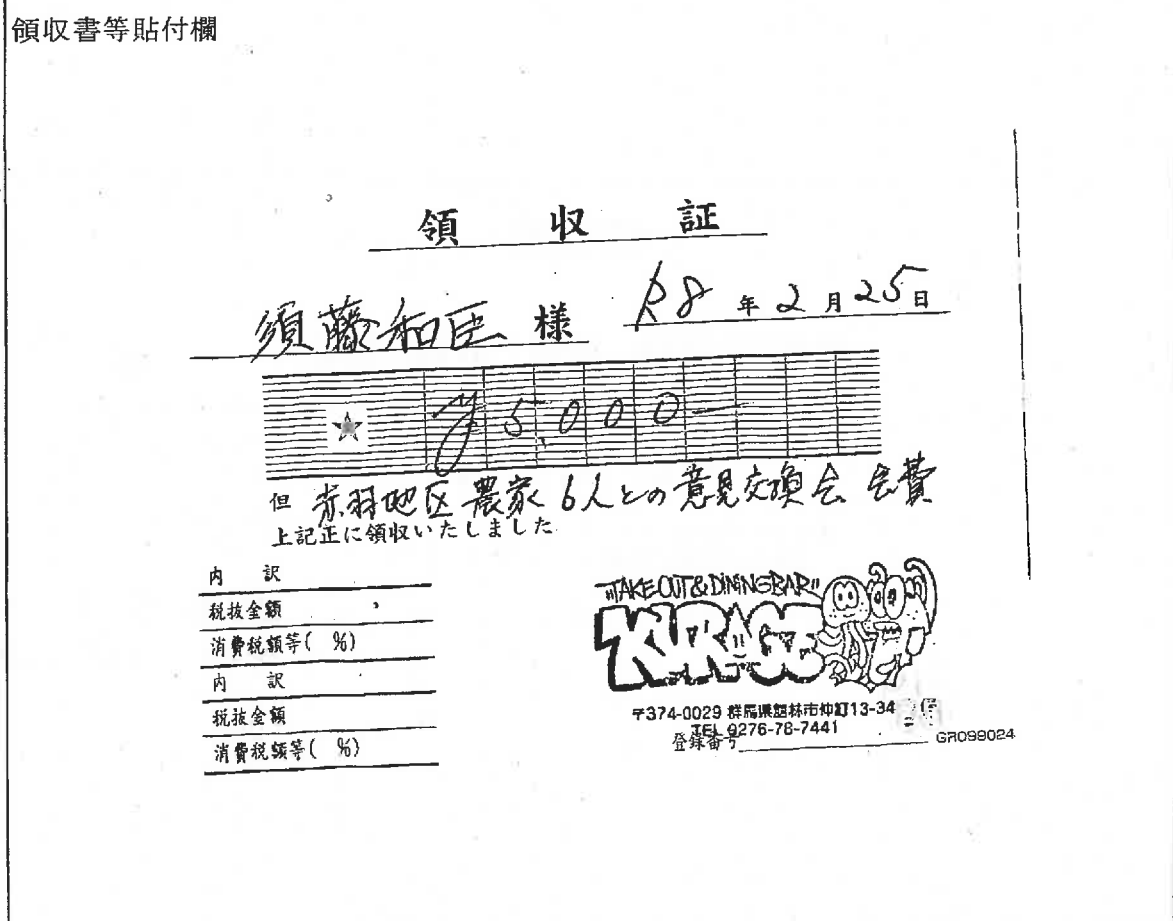 領収書等貼付欄
領収証
須藤和臣 様 R8年2月25日
★ ¥5,000—
但 赤羽地区農家6人との意見交換会 会費
上記正に領収いたしました
内訳
税抜金額
消費税額等( %)
内訳
税抜金額
消費税額等( %)
"TAKE-OUT & DINING BAR"
KURAGE
〒374-0029 群馬県館林市仲町13-34
TEL 0276-78-7441
登録番号
GR099024